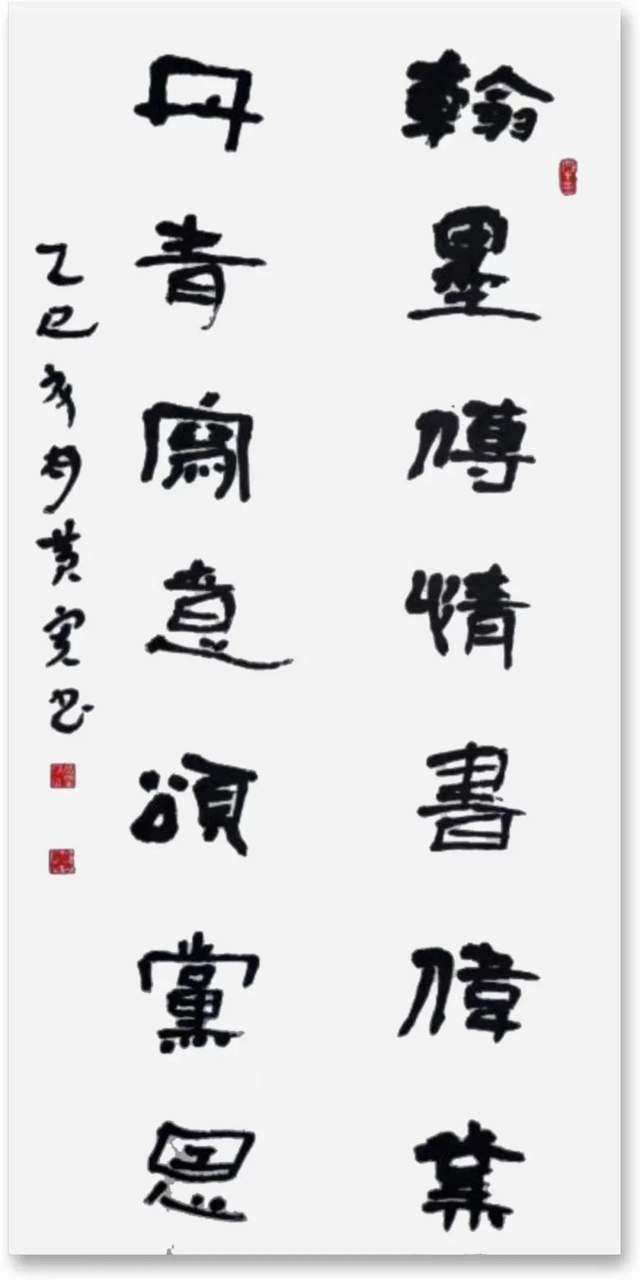 翰墨傳情書偉業
丹青寫意頌黨恩
乙巳黄书